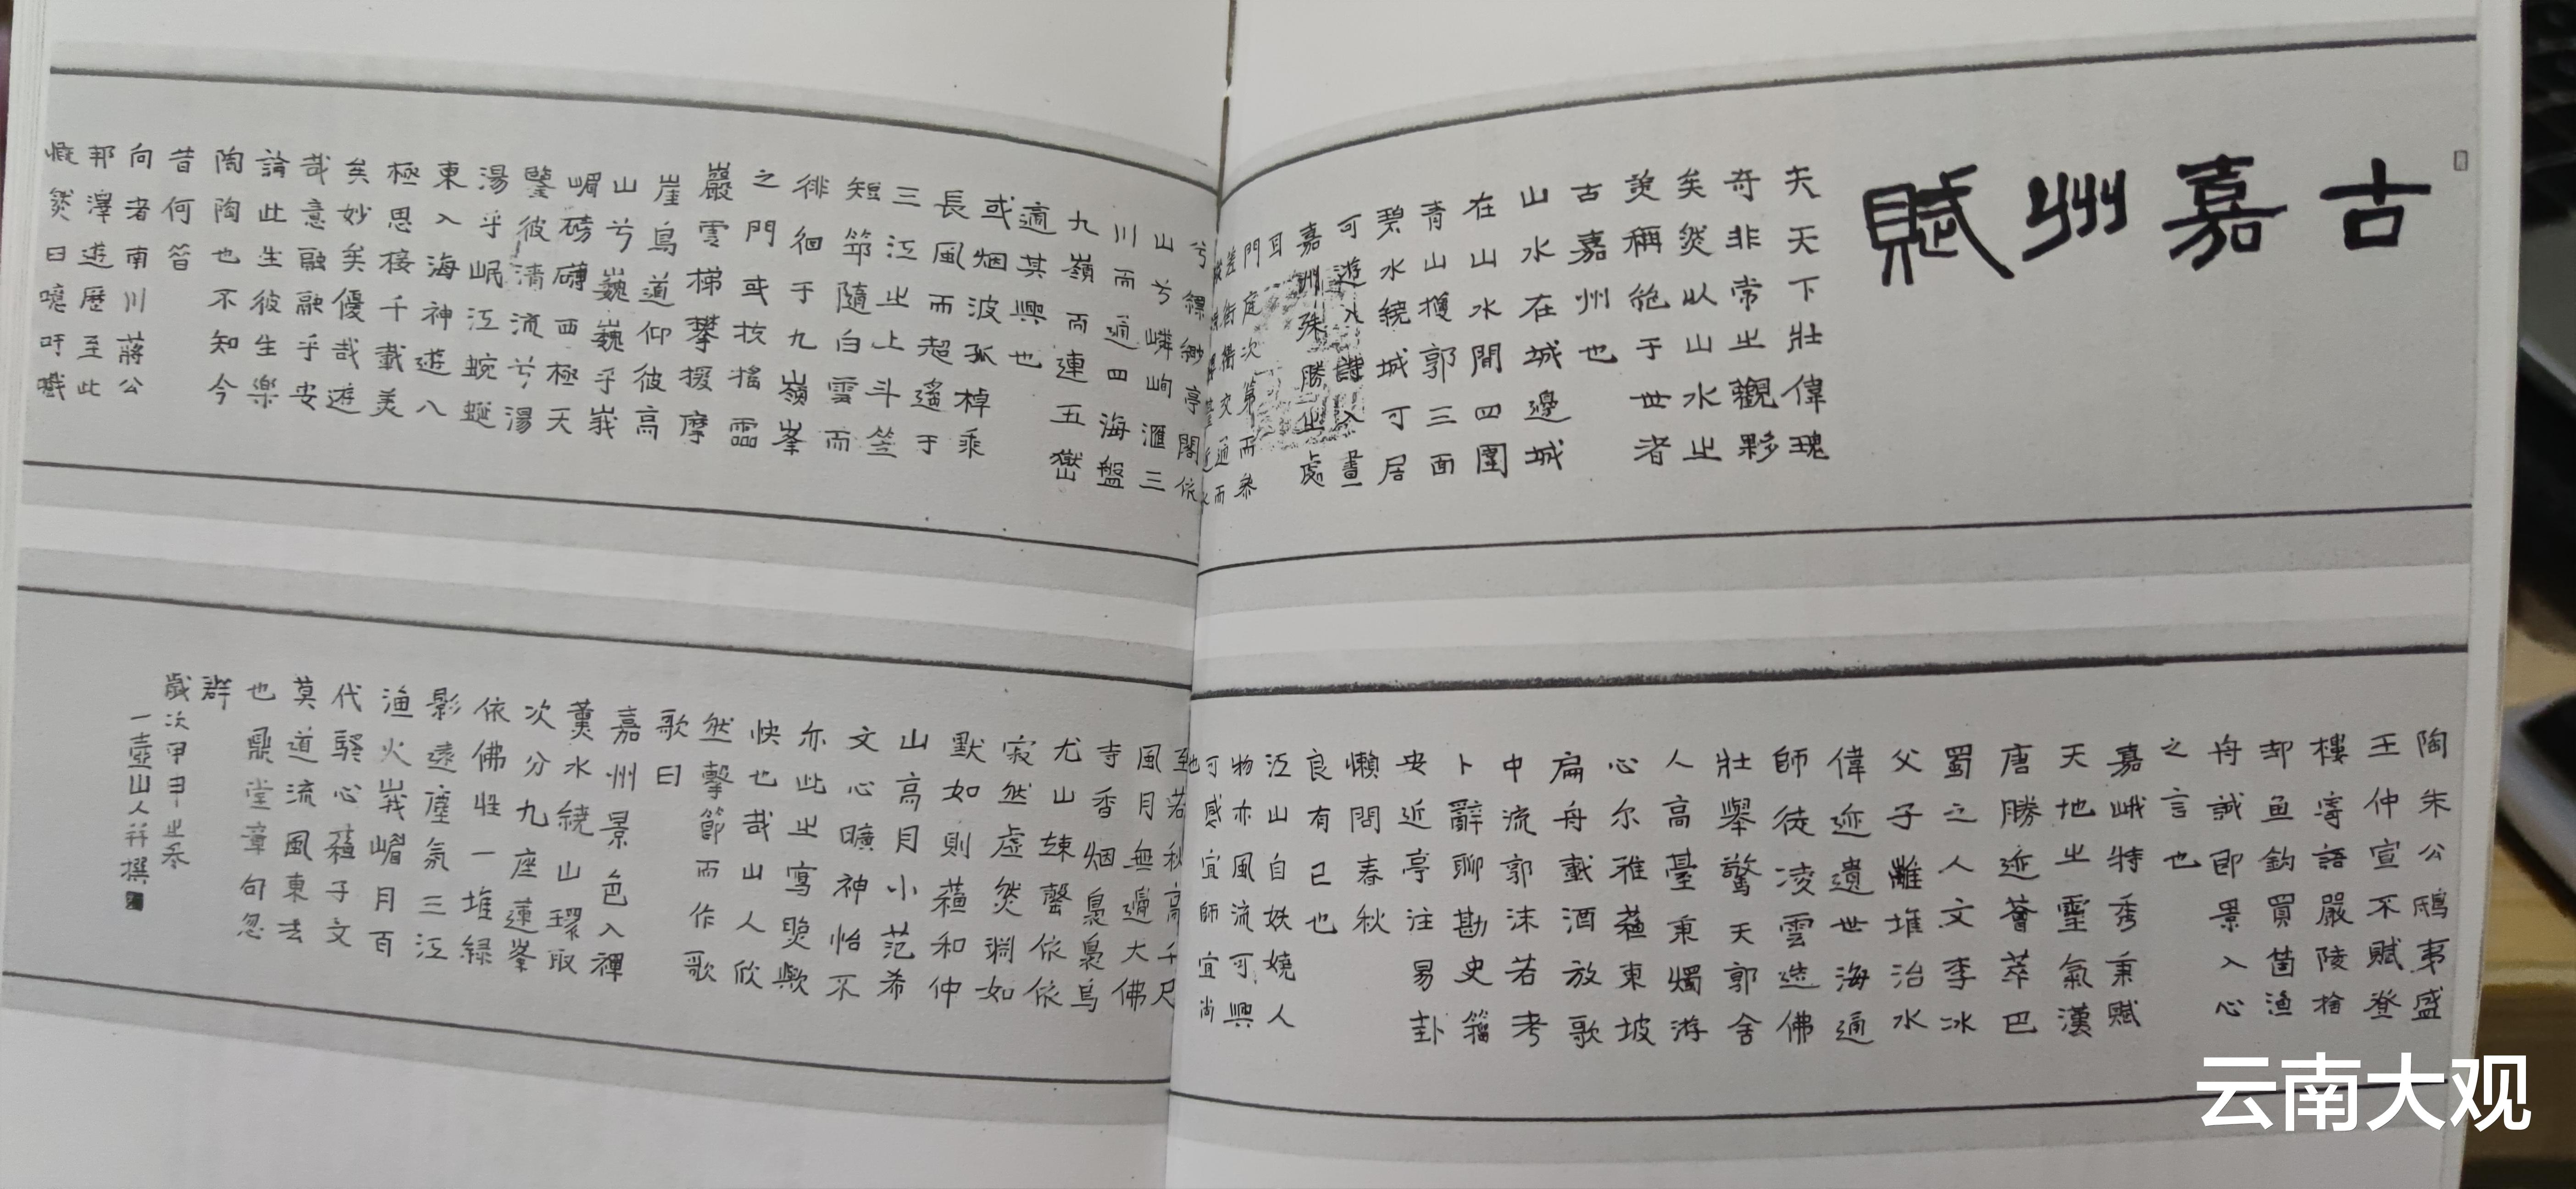 古嘉州賦
夫天下壯偉瑰
奇非常之觀夥
矣然以山水之
美稱絕于世者
古嘉州也
山水在城邊城
在山水間四圍
青山擁郭三面
碧水繞城可居
可遊入詩入畫
嘉州殊勝之處
耳
門庭次第而參
差街衢交通而
樓臺近水
兮縹緲亭閣依
山兮嶙峋滙三
川而通四海盤
九嶺而連五嶽
適其興也
或烟波孤棹乘
長風而超遙于
三江之上斗笠
短筇隨白雲而
徘徊于九嶺峯
之門或搖靈
巖雲梯攀援摩
崖鳥道仰彼高
山兮巍巍乎峩
嵋磅礴西極天
鑒彼清流兮湯
湯乎岷江蜿蜒
東入海神遊八
極思接千載美
矣妙矣優哉遊
哉意融融乎安
論此生彼生樂
陶陶也不知今
昔何
向者南川蔣公
邦澤遊歷至此
慨然曰噫吁嚱
陶朱公鴟夷盛
王仲宣不賦登
樓寄語嚴陵捨
却魚鈎買箇漁
舟誠即景入心
之言也
嘉峨特秀秉賦
天地之靈氣漢
唐勝迹薈萃巴
蜀之人文李冰
父子離堆治水
偉迹遺世海通
師徒凌雲造佛
壯舉驚天郭舍
人高臺秉燭游
心尔雅蘓東坡
扁舟載酒放歌
中流郭沫若考
卜辭聊勘史籀
安近亭注易卦
懶問春秋
良有已也
江山自妖嬈人
物亦風流可興
可感宜師宜尚
也
至若秋高千尺
風月無邊大佛
寺香烟裊裊烏
尤山疎磬依依
寂然虛然淵如
默如則蘓和仲
山高月小范希
文心曠神怡不
亦此之寫照歟
快也哉山人欣
然擊節而作歌
歌曰
嘉州景色入禪
美水繞山環取
次分九座蓮峯
依佛性一堆緑
影遠塵氛三江
漁火峩嵋月百
代騷心蘓子文
莫道流風東去
也鼎堂章句忽
群
歲次甲申之春
一壺山人并撰
云南大观